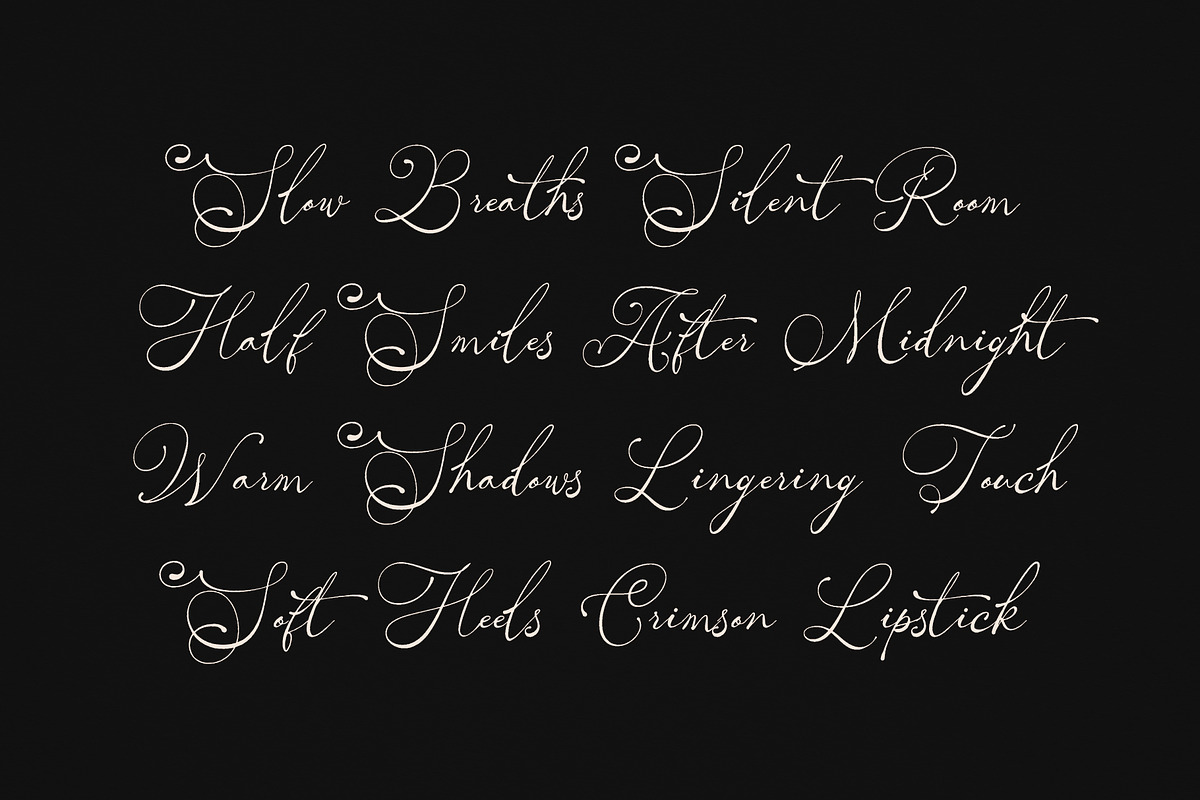 Slow Breaths Silent Room
Half Smiles After Midnight
Warm Shadows Lingering Touch
Soft Heels Crimson Lipstick